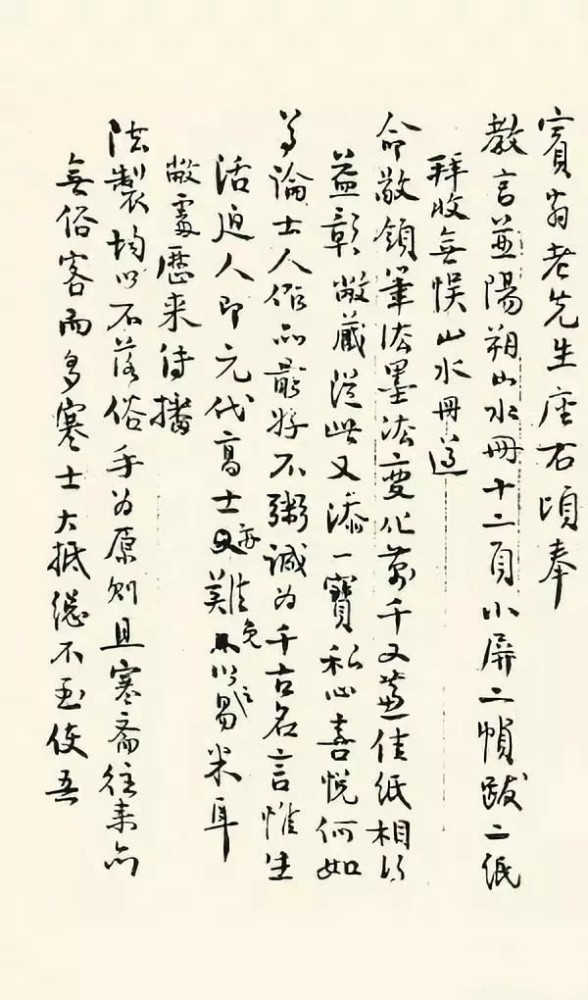 賓翁老先生座右頃奉
教言並陽朔山水冊十二頁小屏二幀跋二紙
拜收無悞山水冊遵
命敬領筆法墨法變化萬千又兼佳紙相得
益彰敝藏從此又添一寶私心喜悅何如
等論士人作品最好不鬻誠為千古名言惟生
活迫人即元代高士亦難免以之易米耳
敝處歷來待播
法製均以不落俗手為原則且寒齋往來亦
無俗客而多寒士大抵總不至使吾